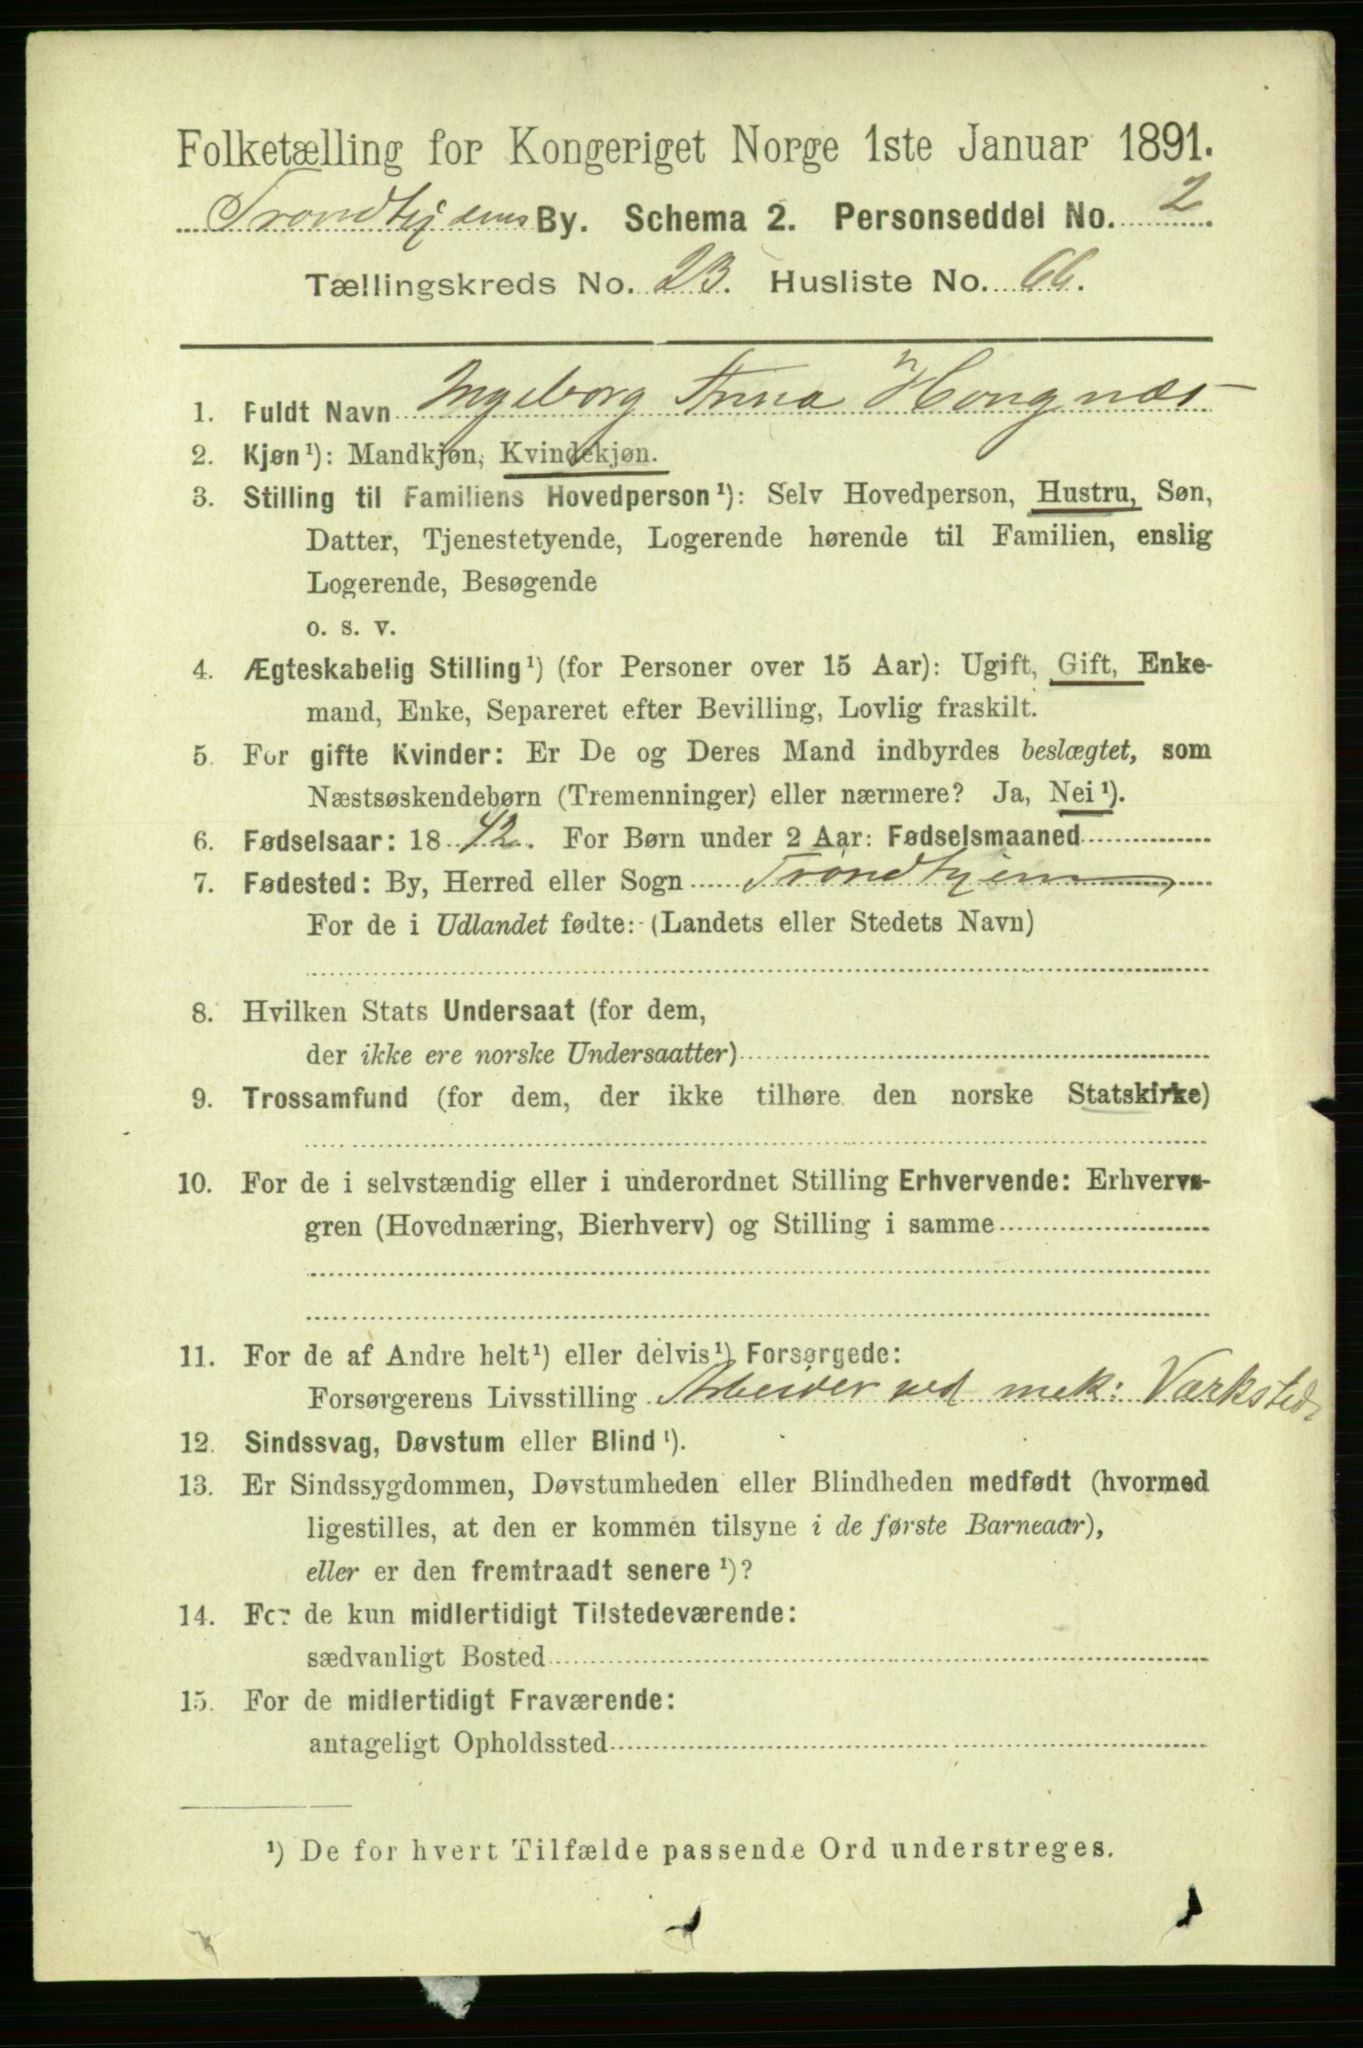 Folketælling for Kongeriget Norge 1ste Januar 1891.
Trondhjems By. Schema 2. Personseddel No. 2
Tællingskreds No. 23. Husliste No. 66.
1. Fuldt Navn Ingeborg Anna Hongnæs
2. Kjøn¹): Mandkjøn, Kvindekjøn.
3. Stilling til Familiens Hovedperson¹): Selv Hovedperson, Hustru, Søn,
Datter, Tjenestetyende, Logerende hørende til Familien, enslig
Logerende, Besøgende
o. s. v.
4. Ægteskabelig Stilling¹) (for Personer over 15 Aar): Ugift, Gift, Enke-
mand, Enke, Separeret efter Bevilling, Lovlig fraskilt.
5. For gifte Kvinder: Er De og Deres Mand indbyrdes beslægtet, som
Næstsøskendebørn (Tremenninger) eller nærmere? Ja, Nei¹).
6. Fødselsaar: 1842. For Børn under 2 Aar: Fødselsmaaned
7. Fødested: By, Herred eller Sogn Trondhjem
For de i Udlandet fødte: (Landets eller Stedets Navn)
8. Hvilken Stats Undersaat (for dem,
der ikke ere norske Undersaatter)
9. Trossamfund (for dem, der ikke tilhøre den norske Statskirke)
10. For de i selvstændig eller i underordnet Stilling Erhvervende: Erhvervs-
gren (Hovednæring, Bierhverv) og Stilling i samme
11. For de af Andre helt¹) eller delvis¹) Forsørgede:
Forsørgerens Livsstilling Arbeider ved mek: Værksted
12. Sindssvag, Døvstum eller Blind¹).
13. Er Sindssygdommen, Døvstumheden eller Blindheden medfødt (hvormed
ligestilles, at den er kommen tilsyne i de første Barneaar),
eller er den fremtraadt senere¹)?
14. For de kun midlertidigt Tilstedeværende:
sædvanligt Bosted
15. For de midlertidigt Fraværende:
antageligt Opholdssted
¹) De for hvert Tilfælde passende Ord understreges.